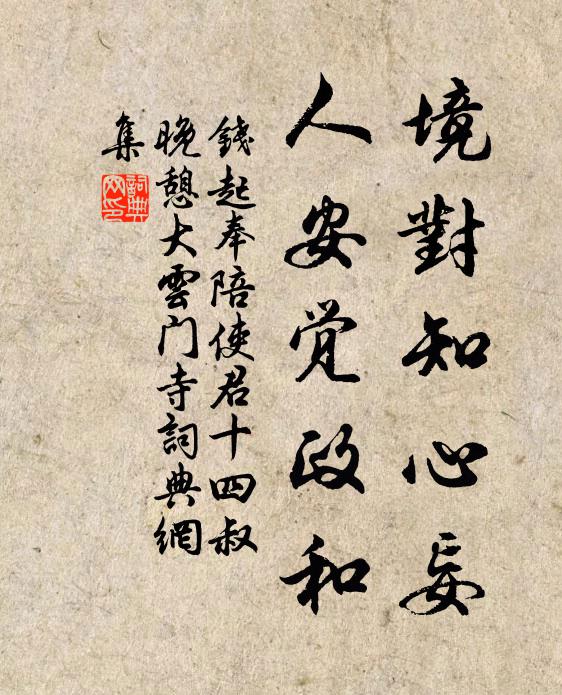 境對知心妄
人安觉政和
錢起奉陪使君十四叔
晚憩大雲门寺詞典網
集
詞典
网印